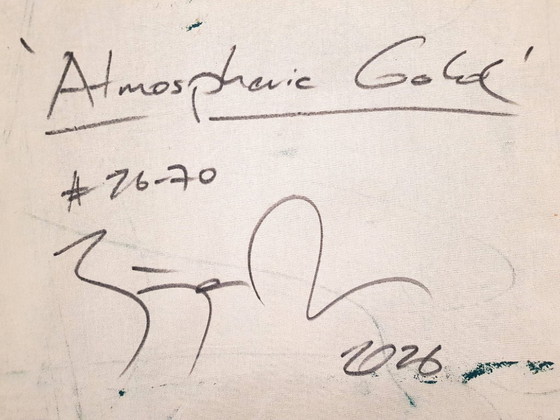 'Atmospheric Gold'
#26-70
2026